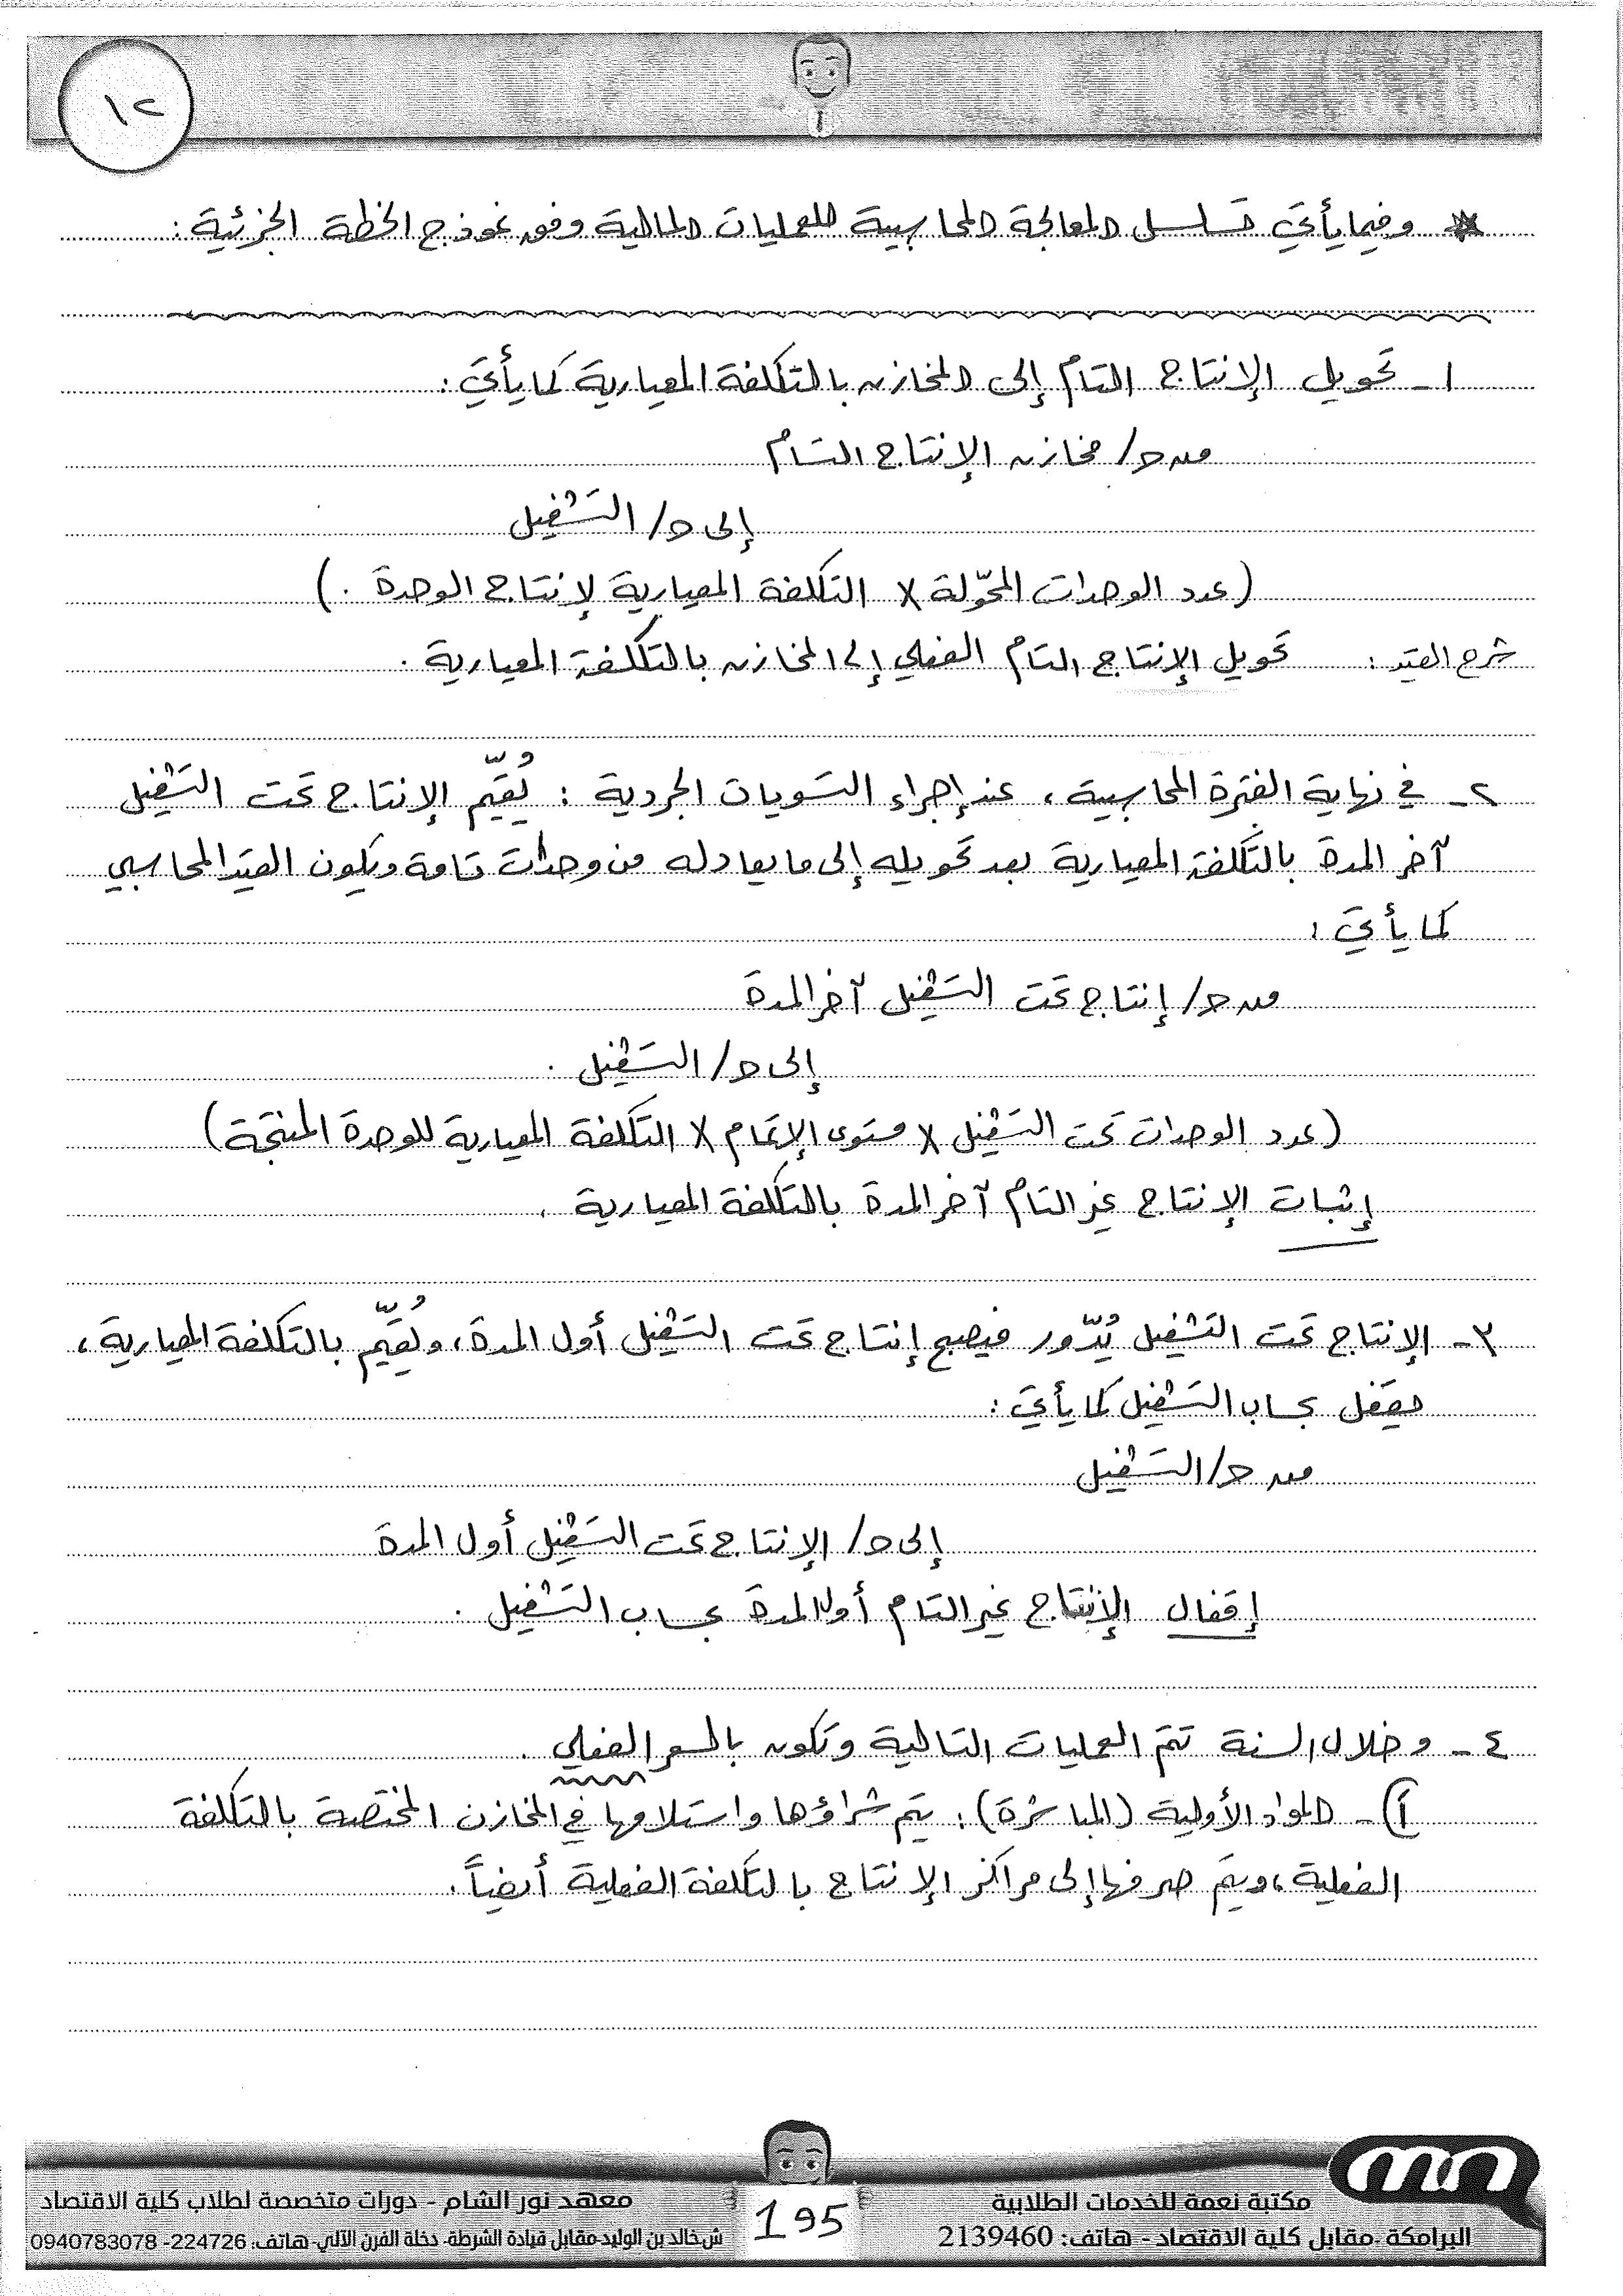 ١٢
* وفيما يأتي تسلسل المعالجة المحاسبية للعمليات المالية وفق نموذج الخطة الجزئية :
١- تحويل الإنتاج التام إلى المخازن بالتكلفة المعيارية كما يأتي :
من حـ/ مخازن الإنتاج التام
إلى حـ/ التشغيل
(عدد الوحدات المحوّلة X التكلفة المعيارية لإنتاج الوحدة .)
شرح القيد : تحويل الإنتاج التام الفعلي إلى المخازن بالتكلفة المعيارية .
٢- في نهاية الفترة المحاسبية ، عند إجراء التسويات الجردية : يُقيّم الإنتاج تحت التشغيل
آخر المدة بالتكلفة المعيارية بعد تحويله إلى ما يعادله من وحدات تامة ويكون القيد المحاسبي
كما يأتي :
من حـ/ إنتاج تحت التشغيل آخر المدة
إلى حـ/ التشغيل .
(عدد الوحدات تحت التشغيل X مستوى الإتمام X التكلفة المعيارية للوحدة المنتجة)
إثبات الإنتاج غير التام آخر المدة بالتكلفة المعيارية .
٣- الإنتاج تحت التشغيل يُدّور فيصبح إنتاج تحت التشغيل أول المدة ، ويُقيّم بالتكلفة المعيارية ،
ويقفل بحساب التشغيل كما يأتي :
من حـ/ التشغيل
إلى حـ/ الإنتاج تحت التشغيل أول المدة
إقفال الإنتاج غير التام أول المدة بحساب التشغيل .
٤- وخلال السنة تتم العمليات التالية وتكون بالسعر الفعلي .
أ)- المواد الأولية (المباشرة) : يتم شراؤها واستلامها في المخازن المختصة بالتكلفة
الفعلية ، ويتم صرفها إلى مراكز الإنتاج بالتكلفة الفعلية أيضاً .
مكتبة نعمة للخدمات الطلابية
البرامكة - مقابل كلية الاقتصاد - هاتف: 2139460
195
معهد نور الشام - دورات متخصصة لطلاب كلية الاقتصاد
ش.خالد بن الوليد-مقابل قيادة الشرطة- دخلة الفرن الآلي- هاتف: 224726- 0940783078